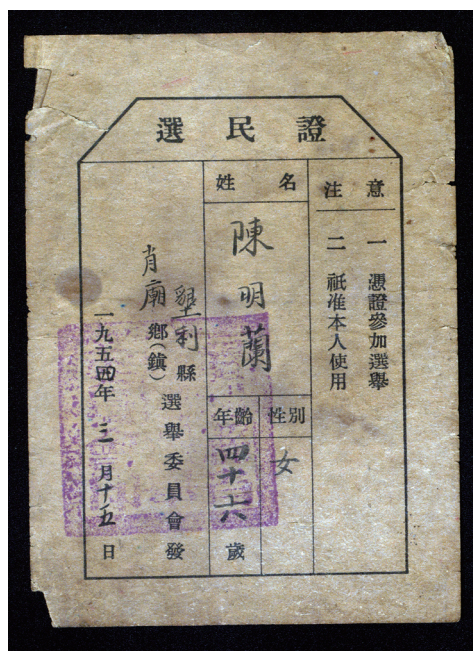 選民證
注意
一 憑證參加選舉
二 祇准本人使用
姓名
陳明蘭
性別
女
年齡
四十六歲
墾利縣
肖廟鄉(鎮)
選舉委員會發
一九五四年三月十五日